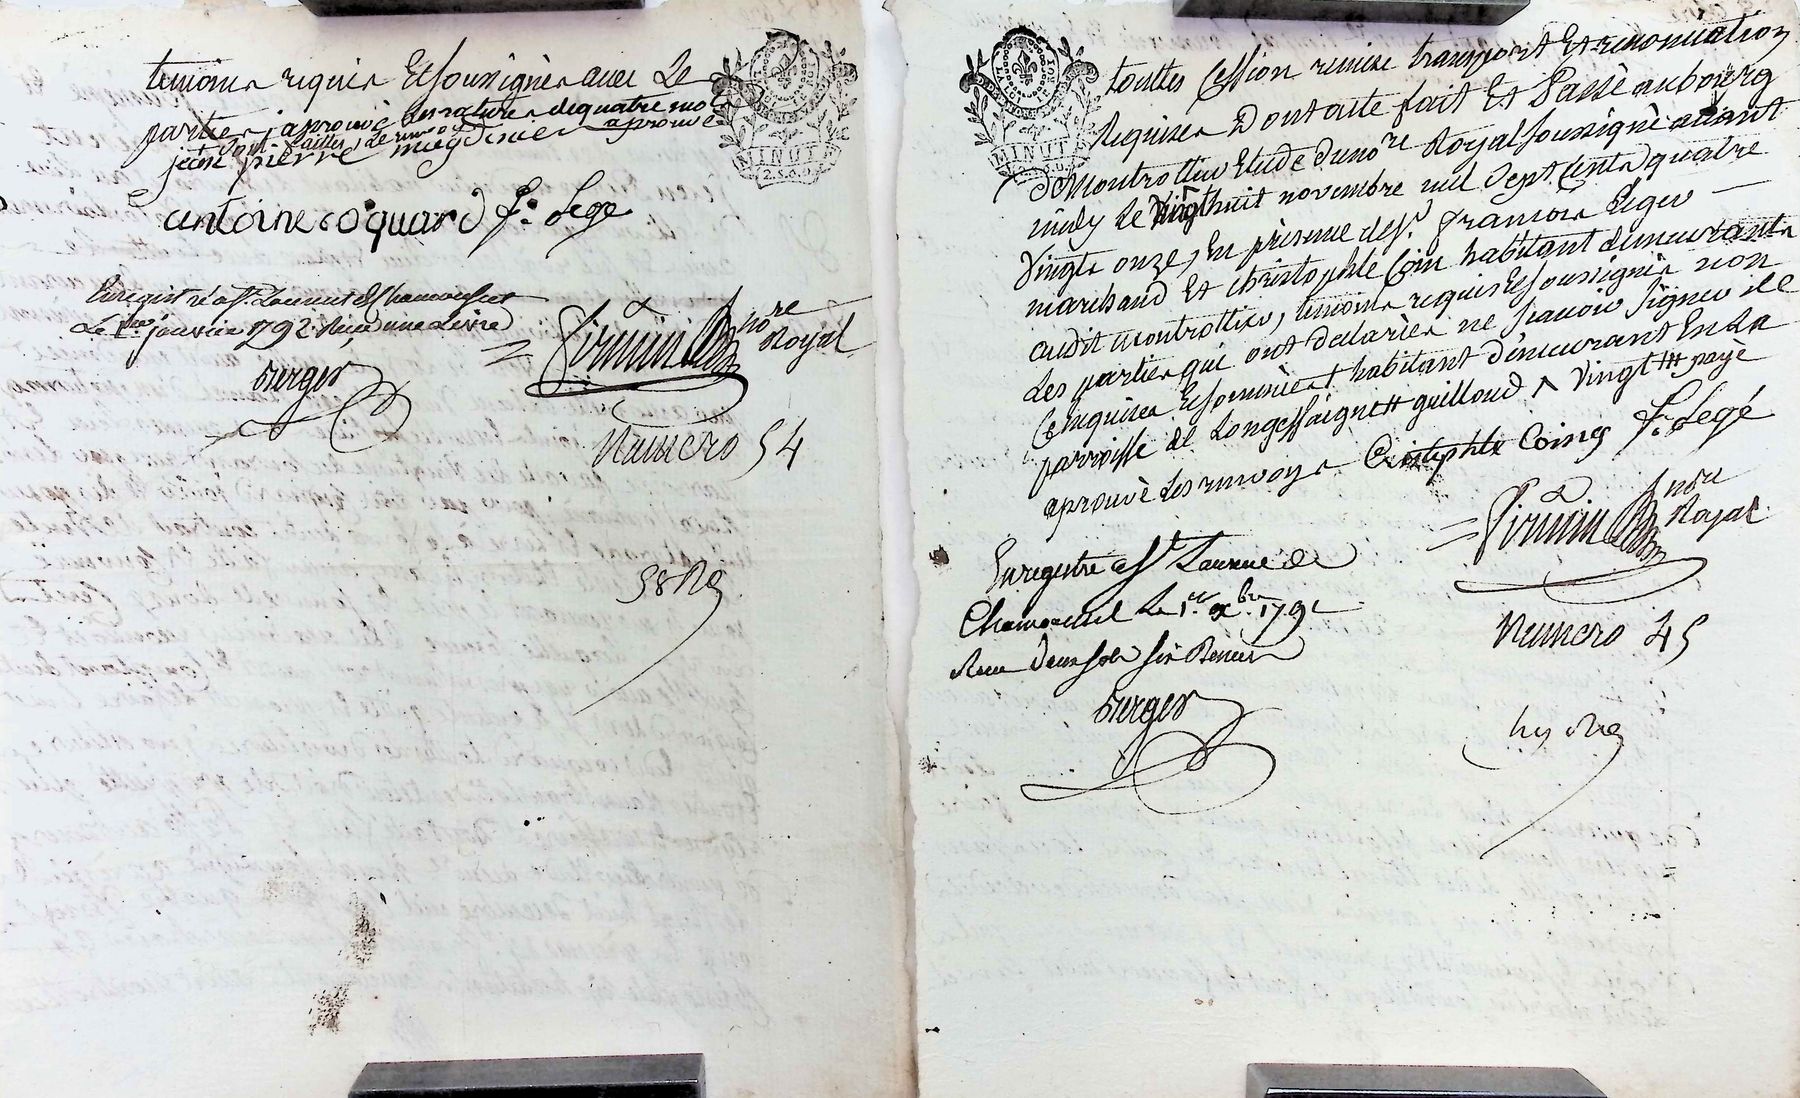 temoins requis Et soussignés avec Le
parties japrouvè Les rature de quatre mot
aprouvé
jean pierre
MINUTE
2.S.
antoine coquard f. Legé
Enregistré a St. Laurent de Chamousset
Le janvier 1792 Reçu une Livre
Berger
nore
Royal
Numero 54
58 Rg
touttes Cession remise transport Et renonciation
Requises Dont acte fait Et Passé au bourg
de Montrottier Etude du nore Royal soussigné avant
midy Le Vingt huit novembre mil Sept Cents quatre
Vingts onze, En présence de Sr. francois Léger
marchand Et Christophle Coin habitant demeurants
audit montrottier, temoins requis Et soussignés non
Les parties qui ont declarées ne scavoir signer de
Ce requises Et habitant demeurant En La
parroisse de Longessaigne guilloud vingt payè
aprouvé Les renvoys Cristophle Coing f. Legé
MINUTE
nore
Royal
Enregistre a St Laurent de
Chamousset Le 1er xbre 1791
Reçu Deux sols six Deniers
Berger
Numero 45